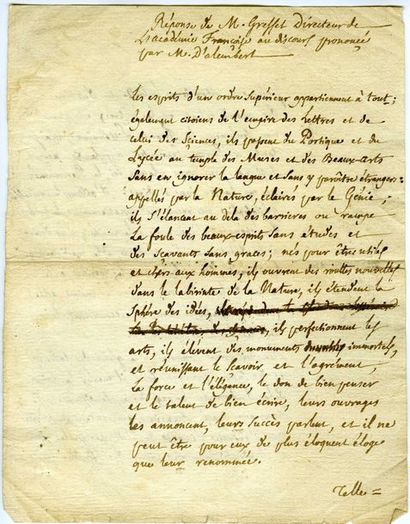 Réponse de M. Gresset Directeur de
L'académie Française au discours prononcé
par M. D'alembert
Les esprits d'un ordre Supérieur appartiennent à tout;
également citoiens de l'empire des Lettres et de
celui des Sciences, ils passent du Portique et du
Lycée au temple des Muses et des Beaux-arts
Sans en ignorer la langue et Sans y paroître étrangers:
appellés par la Nature, éclairés par le Génie;
ils s'élancent au delà des barrieres ou rampe
La foule des beaux-esprits Sans études et
des Scavants Sans graces; nés pour être utiles
et chers aux hommes, ils ouvrent des routes nouvelles
dans le labirinte de la Nature, ils étendent la
Sphère des idées,
ils perfectionnent les
arts, ils élévent des monuments immortels,
et réunissant le Scavoir et l'agrément,
la force et l'élégance, le don de bien penser
et le talent de bien écrire, leurs ouvrages
les annoncent, leurs succès parlent, et il ne
peut être pour eux de plus éloquent éloge
que leur renommée.
Telle =